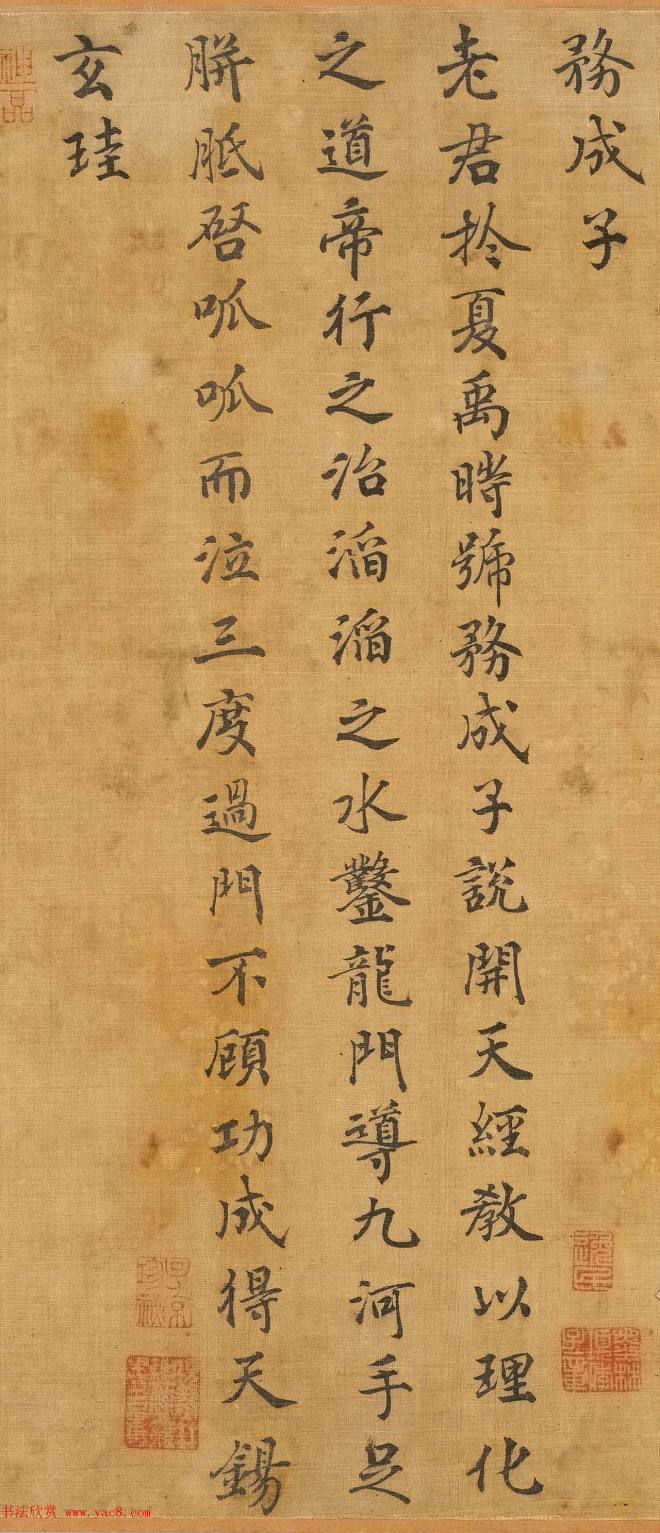 務成子
老君扵夏禹時號務成子說開天經教以理化
之道帝行之治滔滔之水鑿龍門導九河手足
胼胝啓呱呱而泣三度過門不顧功成得天錫
玄珪
神品
子京
书法欣赏 www.yac8.com